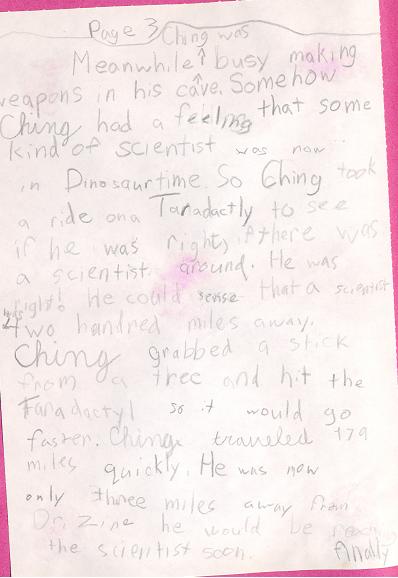 Page 3 Ching was
Meanwhile ↑ busy making
weapons in his cave. Somehow
Ching had a feeling that some
kind of scientist was now
in Dinosaurtime. So Ching took
a ride ona Taradactly to see
if he was right, if there was
a scientist around. He was
right! He could sense that a scientist
was two hundred miles away.
Ching grabbed a stick
from a tree and hit the
Taradactyl so it would go
faster. Ching traveled 179
miles quickly. He was now
only three miles away from
Dr. Zine he would be
the scientist soon. finally